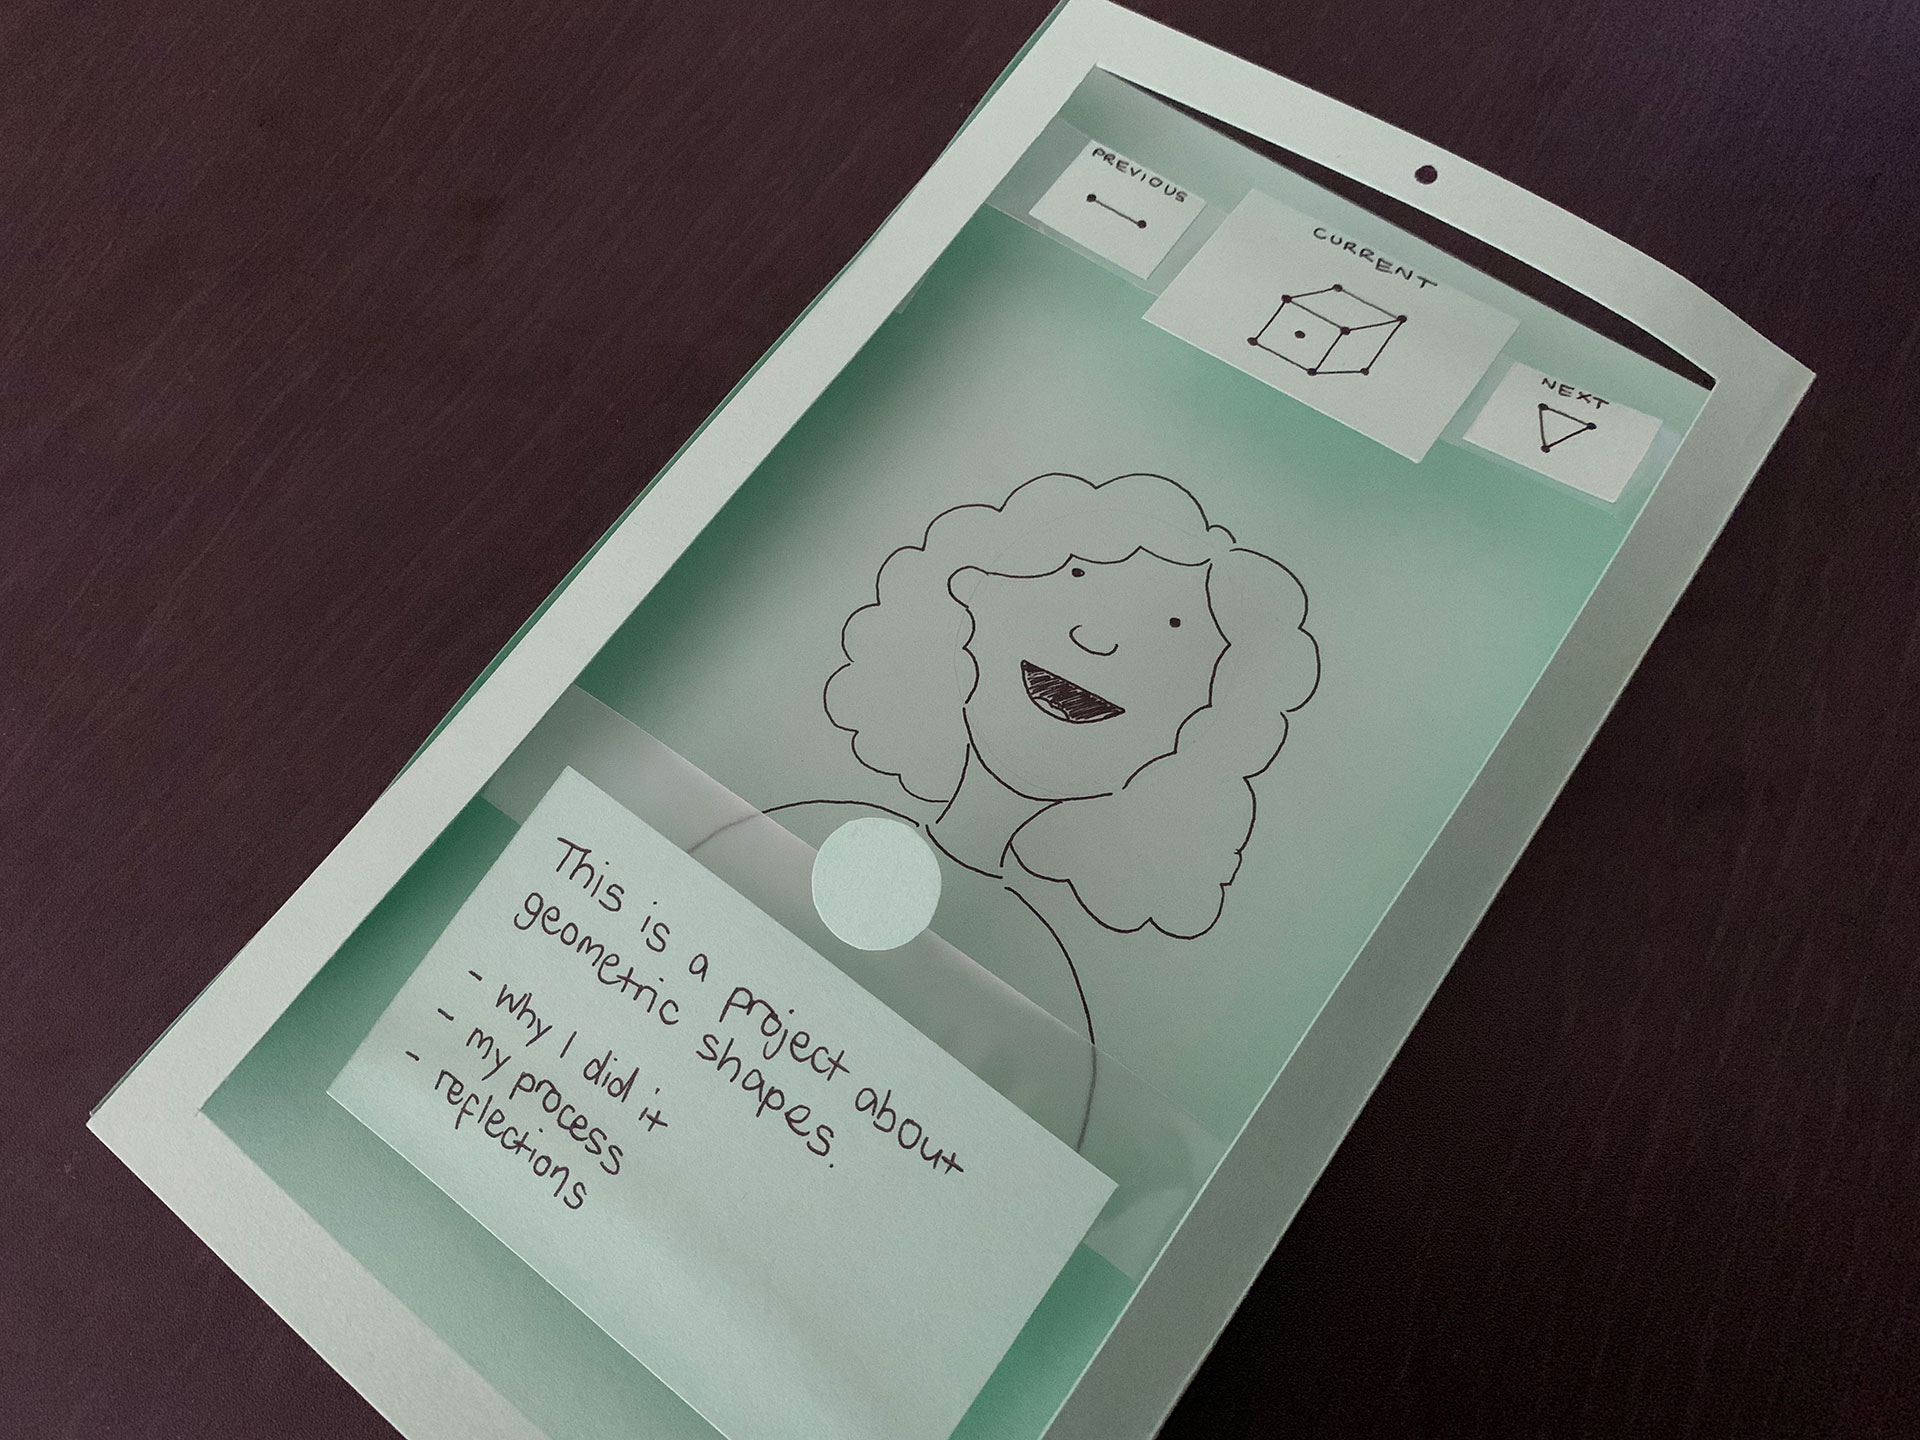 PREVIOUS
CURRENT
NEXT
This is a project about
geometric shapes.
- why I did it
- my process
- reflections